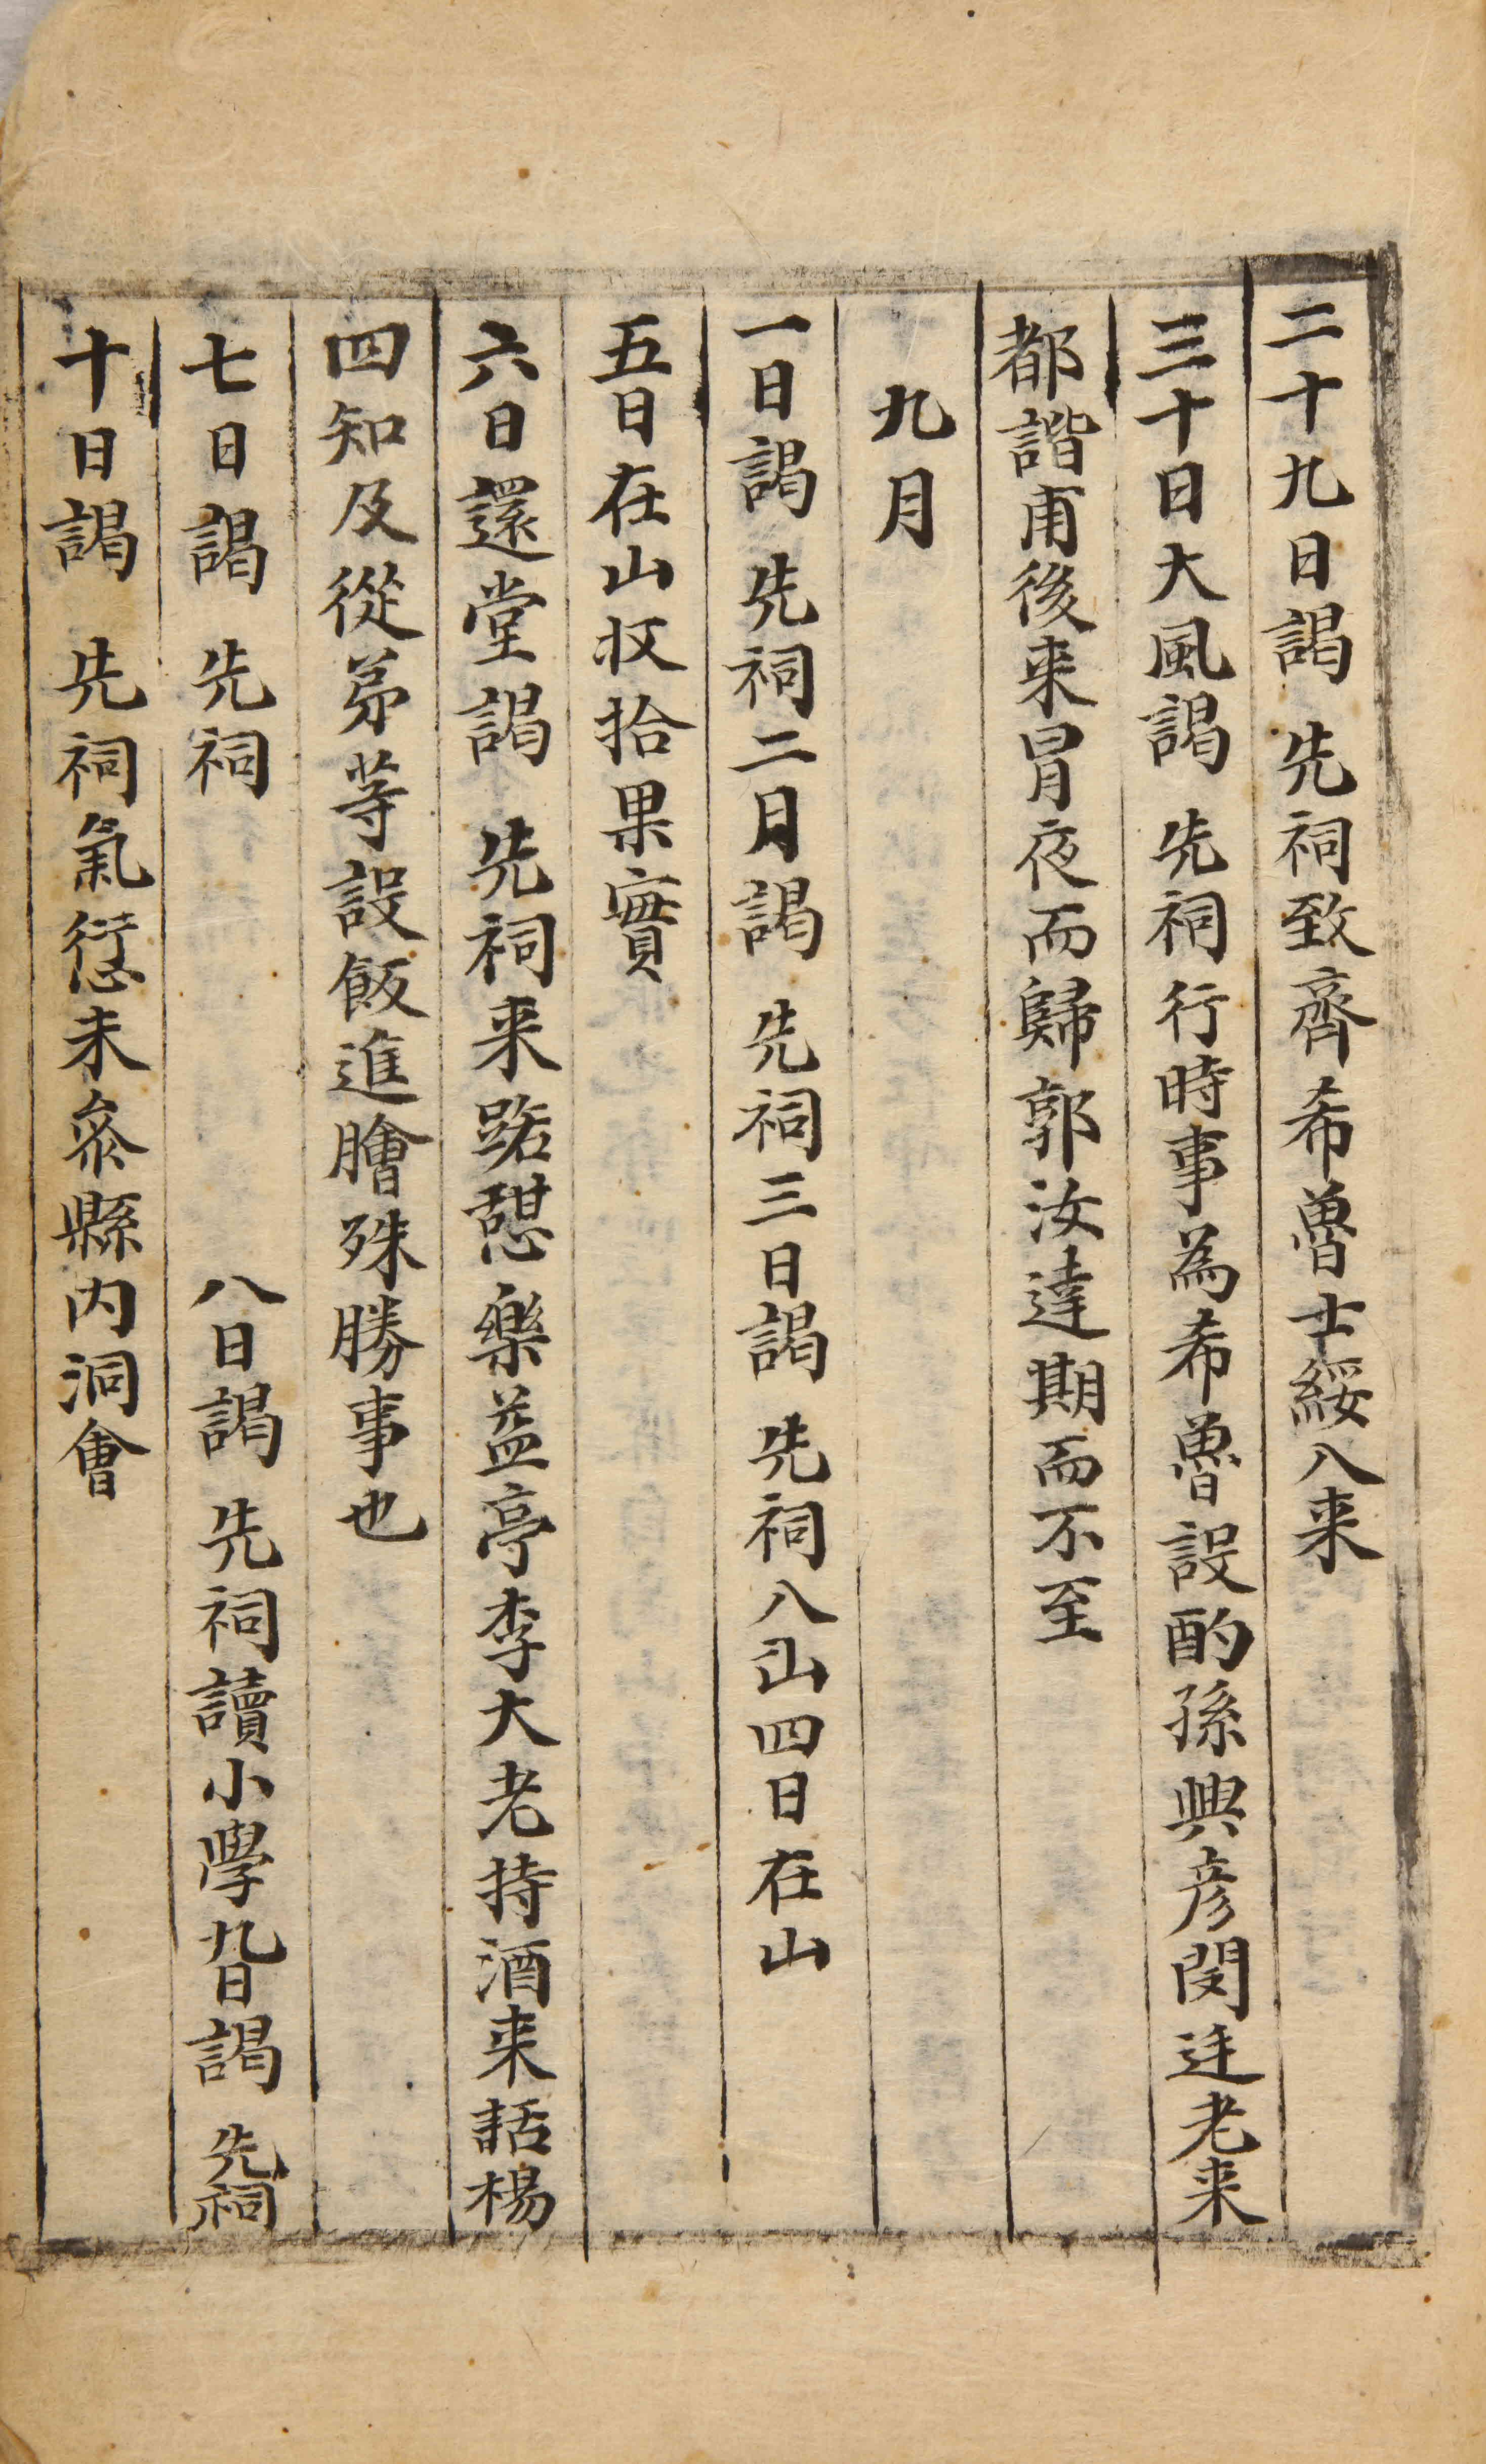 二十九日謁 先祠致齊希魯士綏入来
三十日大風謁 先祠行時事為希魯設酌孫興彦閔廷老来
都諧甫後来冒夜而歸郭汝達期而不至
九月
一日謁 先祠二月謁 先祠三日謁 先祠入山四日在山
五日在山收拾果實
六日還堂謁 先祠来踞憇樂益亭李大老持酒来話楊
四知及從苐等設飯進膾殊勝事也
七日謁 先祠 八日謁 先祠讀小學九日謁 先祠
十日謁 先祠氣愆未叅縣内洞會